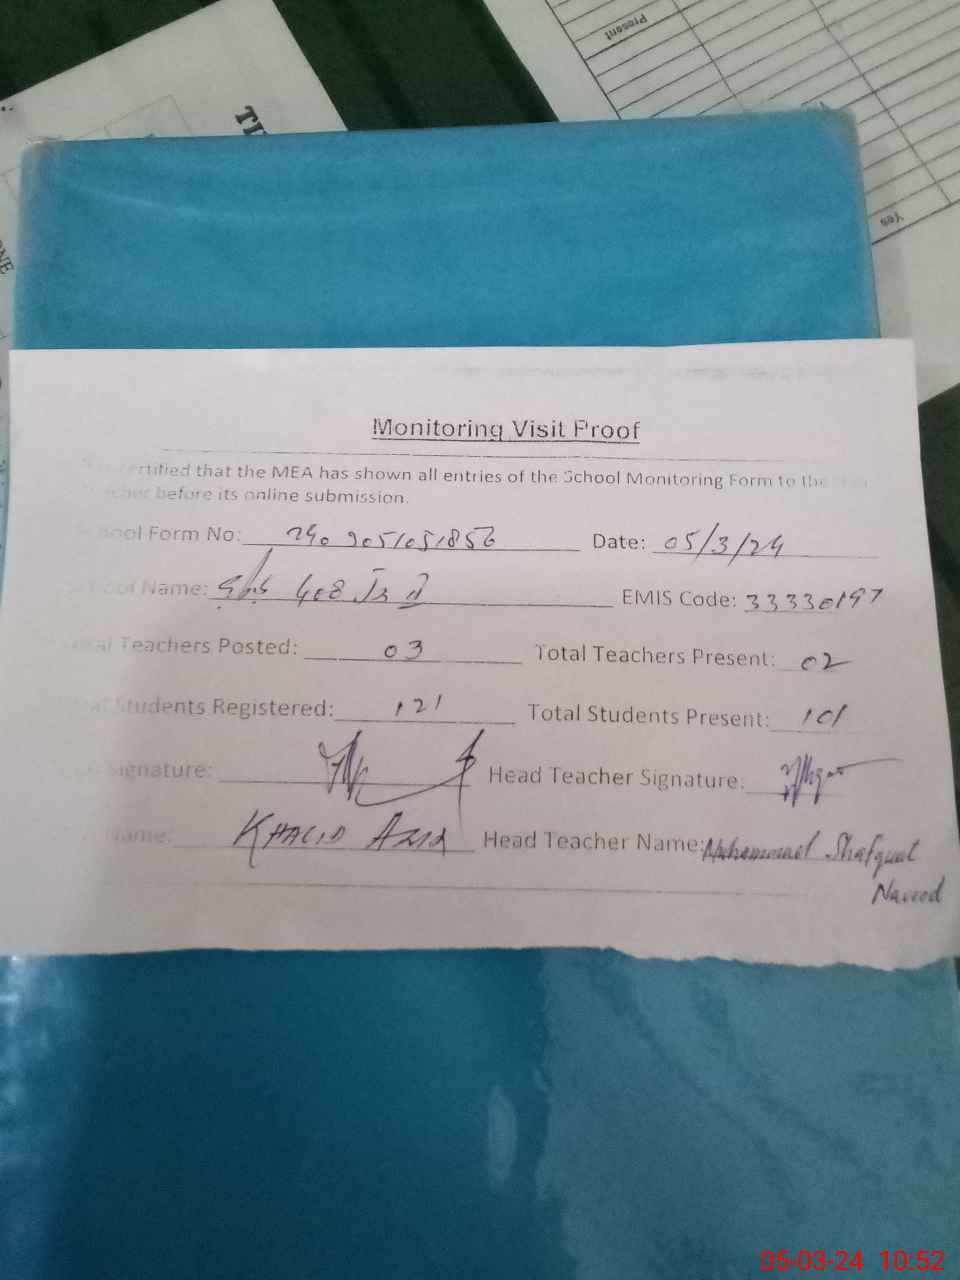 Present
Yes
Monitoring Visit Proof
certified that the MEA has shown all entries of the School Monitoring Form to the
before its online submission.
School Form No: Date: 05/3/24
School Name: 408 EMIS Code: 33330197
Total Teachers Posted: 03 Total Teachers Present: 02
Students Registered: 121 Total Students Present: 101
Signature: Head Teacher Signature:
Name: KHALID AZIZ Head Teacher Name: Muhammad Shafquat
Naveed
05-03-24 10:52